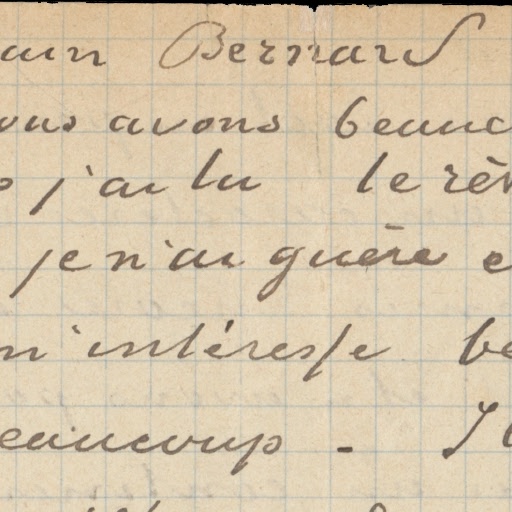 ain Bernard
ous avons beauc
j'ai lu le rêv
je n'ai guère e
m'intéresse be
eaucoup - Il